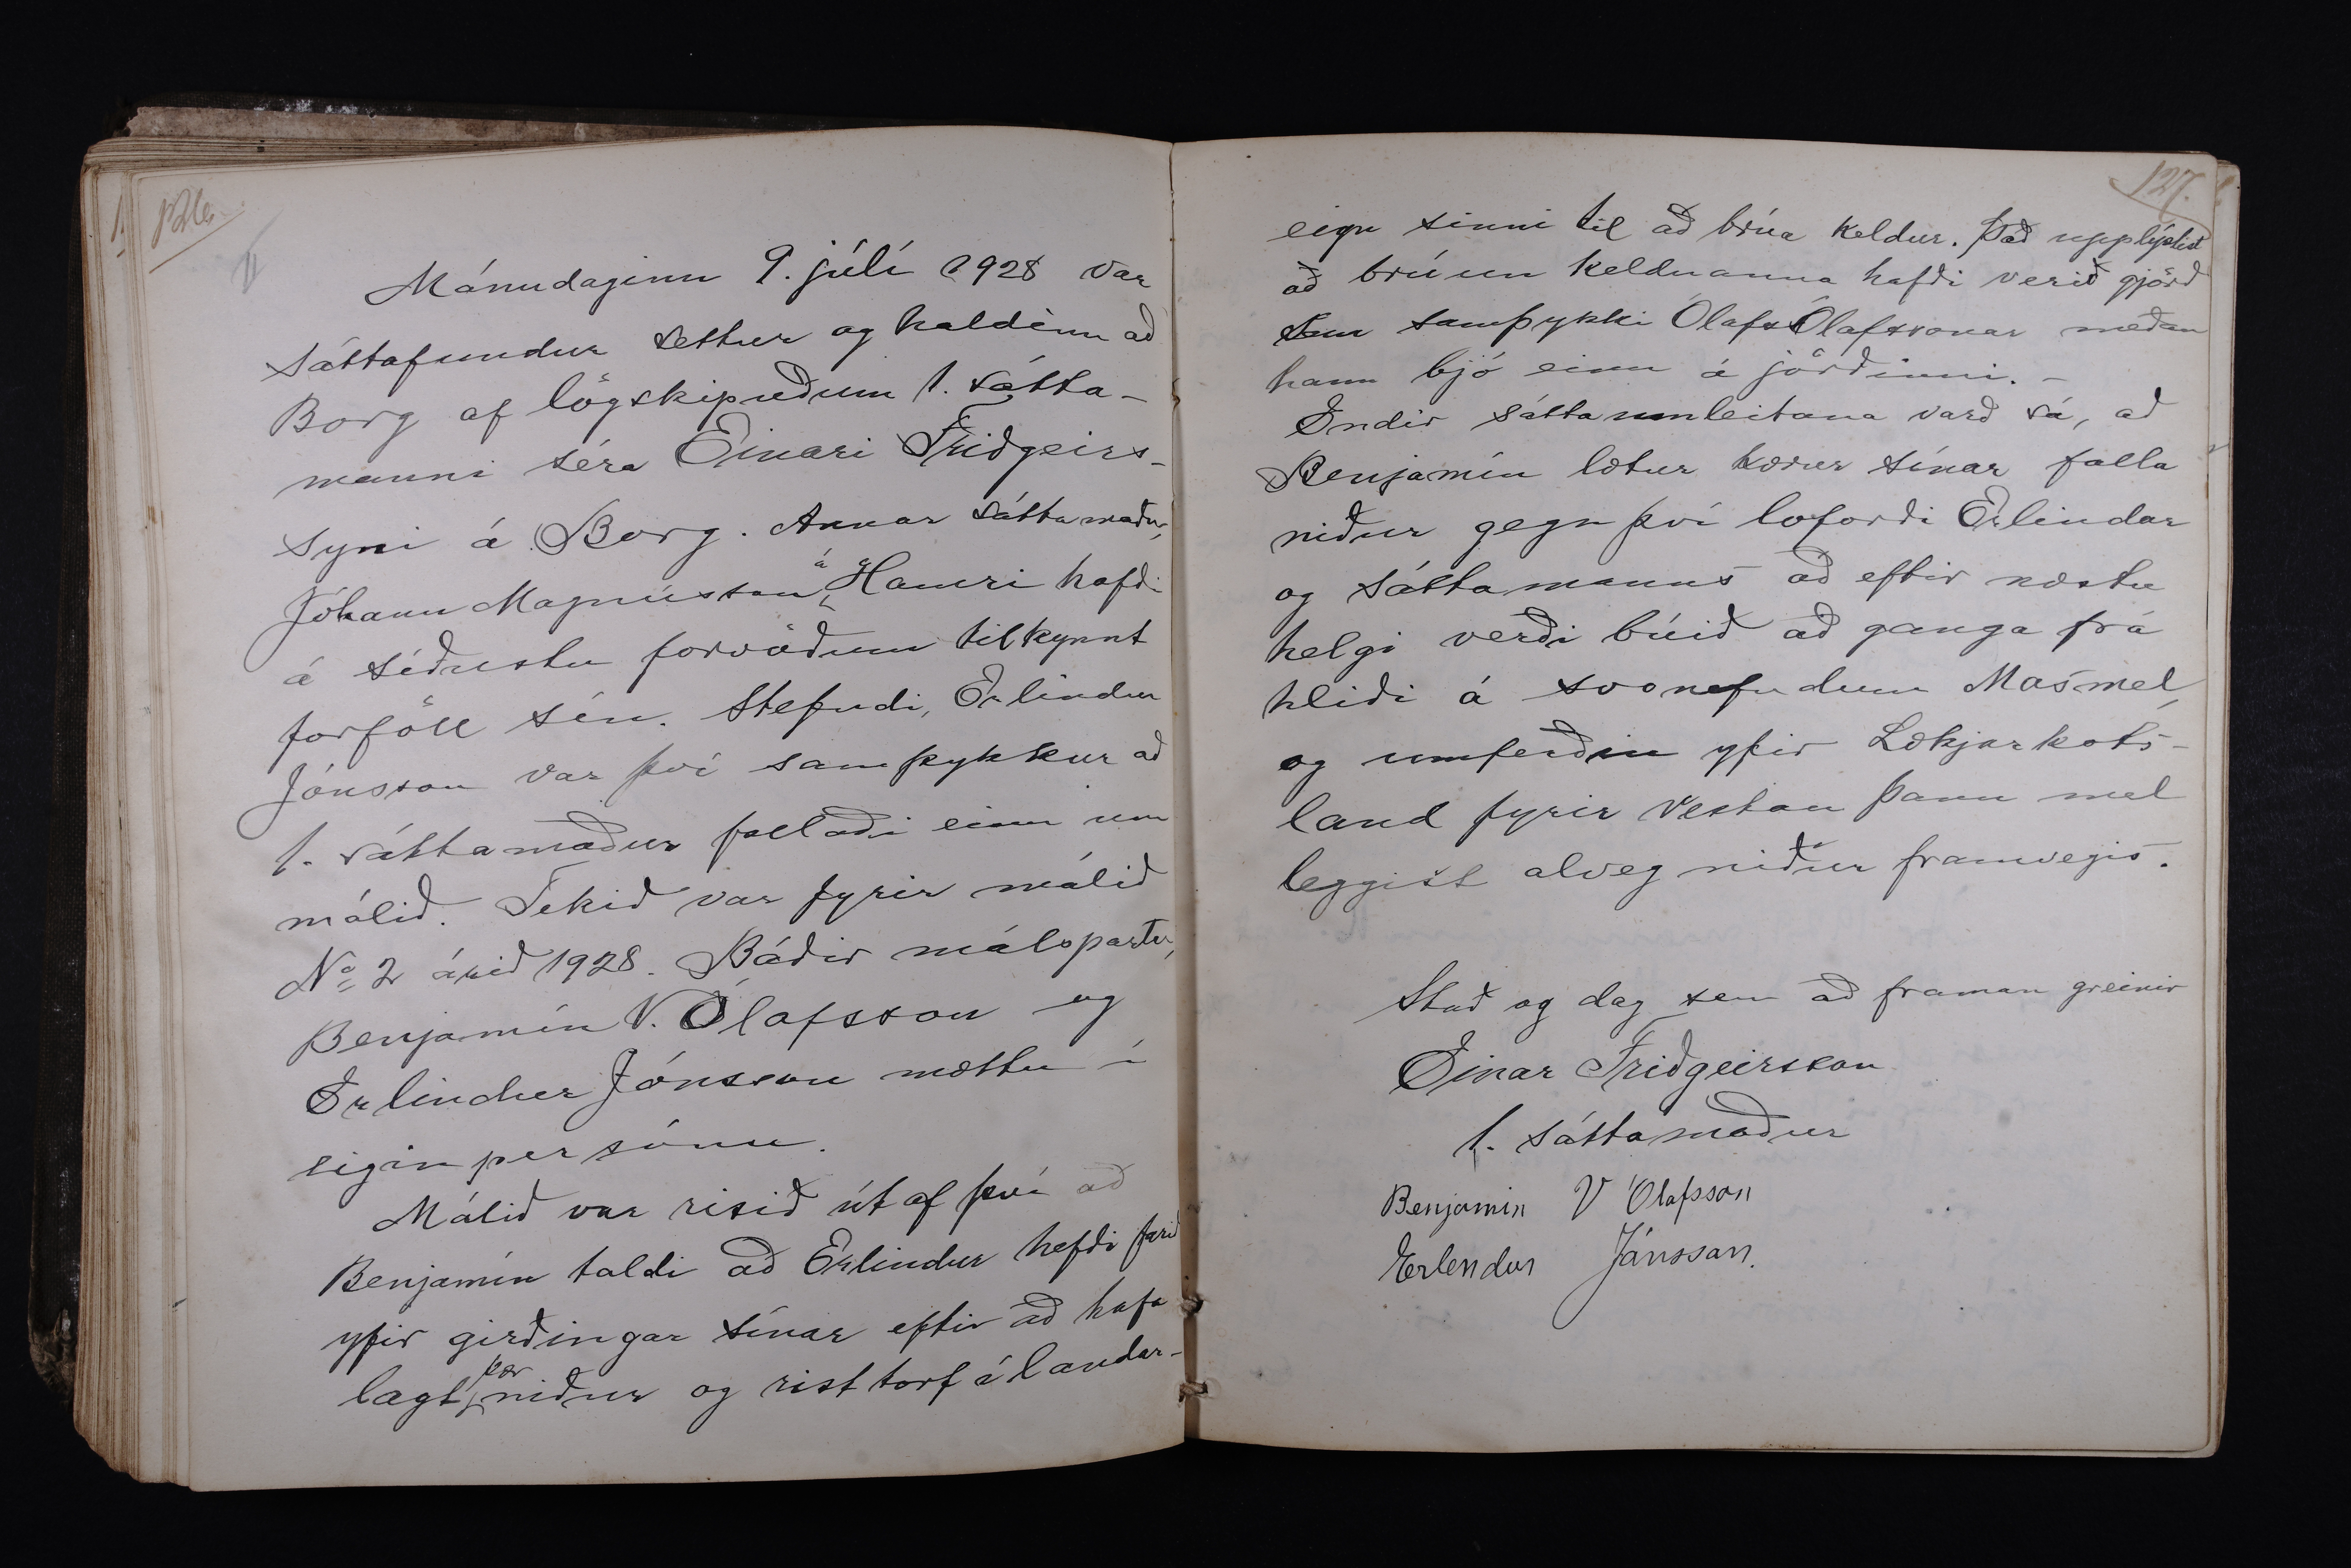 126.
Mánudaginn 9. júlí 1928 var
sáttafundur settur og haldinn að
Borg af lögskipuðum 1. sátta-
manni séra Einari Friðgeirs-
syni á Borg. Annar sáttamaður,
Jóhann Magnússon á Hamri hafði
á síðustu forvöðum tilkynnt
forföll sín. Stefndi, Erlindur
Jónsson var því samþykkur að
1. sáttamaður fjallaði einn um
málið. Tekið var fyrir málið
No 2 árið 1928. Báðir málspartar,
Benjamín V. Ólafsson og
Erlindur Jónsson mættu í
eigin persónu.
Málið var risið út af því að
Benjamín taldi að Erlindur hefði farið
yfir girðingar sínar eftir að hafa
lagt þær niður og rist torf á landar-
127.
eign sinni til að brúa keldur. Það upplýstist
að brúun keldnanna hafði verið gjörð
með samþykki Ólafs Ólafssonar meðan
hann bjó einn á jörðinni. -
Endir sáttaumleitana varð sá, að
Benjamín lætur kærur sínar falla
niður gegn því loforði Erlindar
og sáttamanns að eftir næstu
helgi verði búið að ganga frá
hliði á svonefndum Másmel,
og umferðin yfir Lækjarkots-
land fyrir vestan þann mel
leggist alveg niður framvegis.
Stað og dag sem að framan greinir
Einar Friðgeirsson
1. sáttamaður
Benjamín V Ólafsson
Erlendur Jónsson.